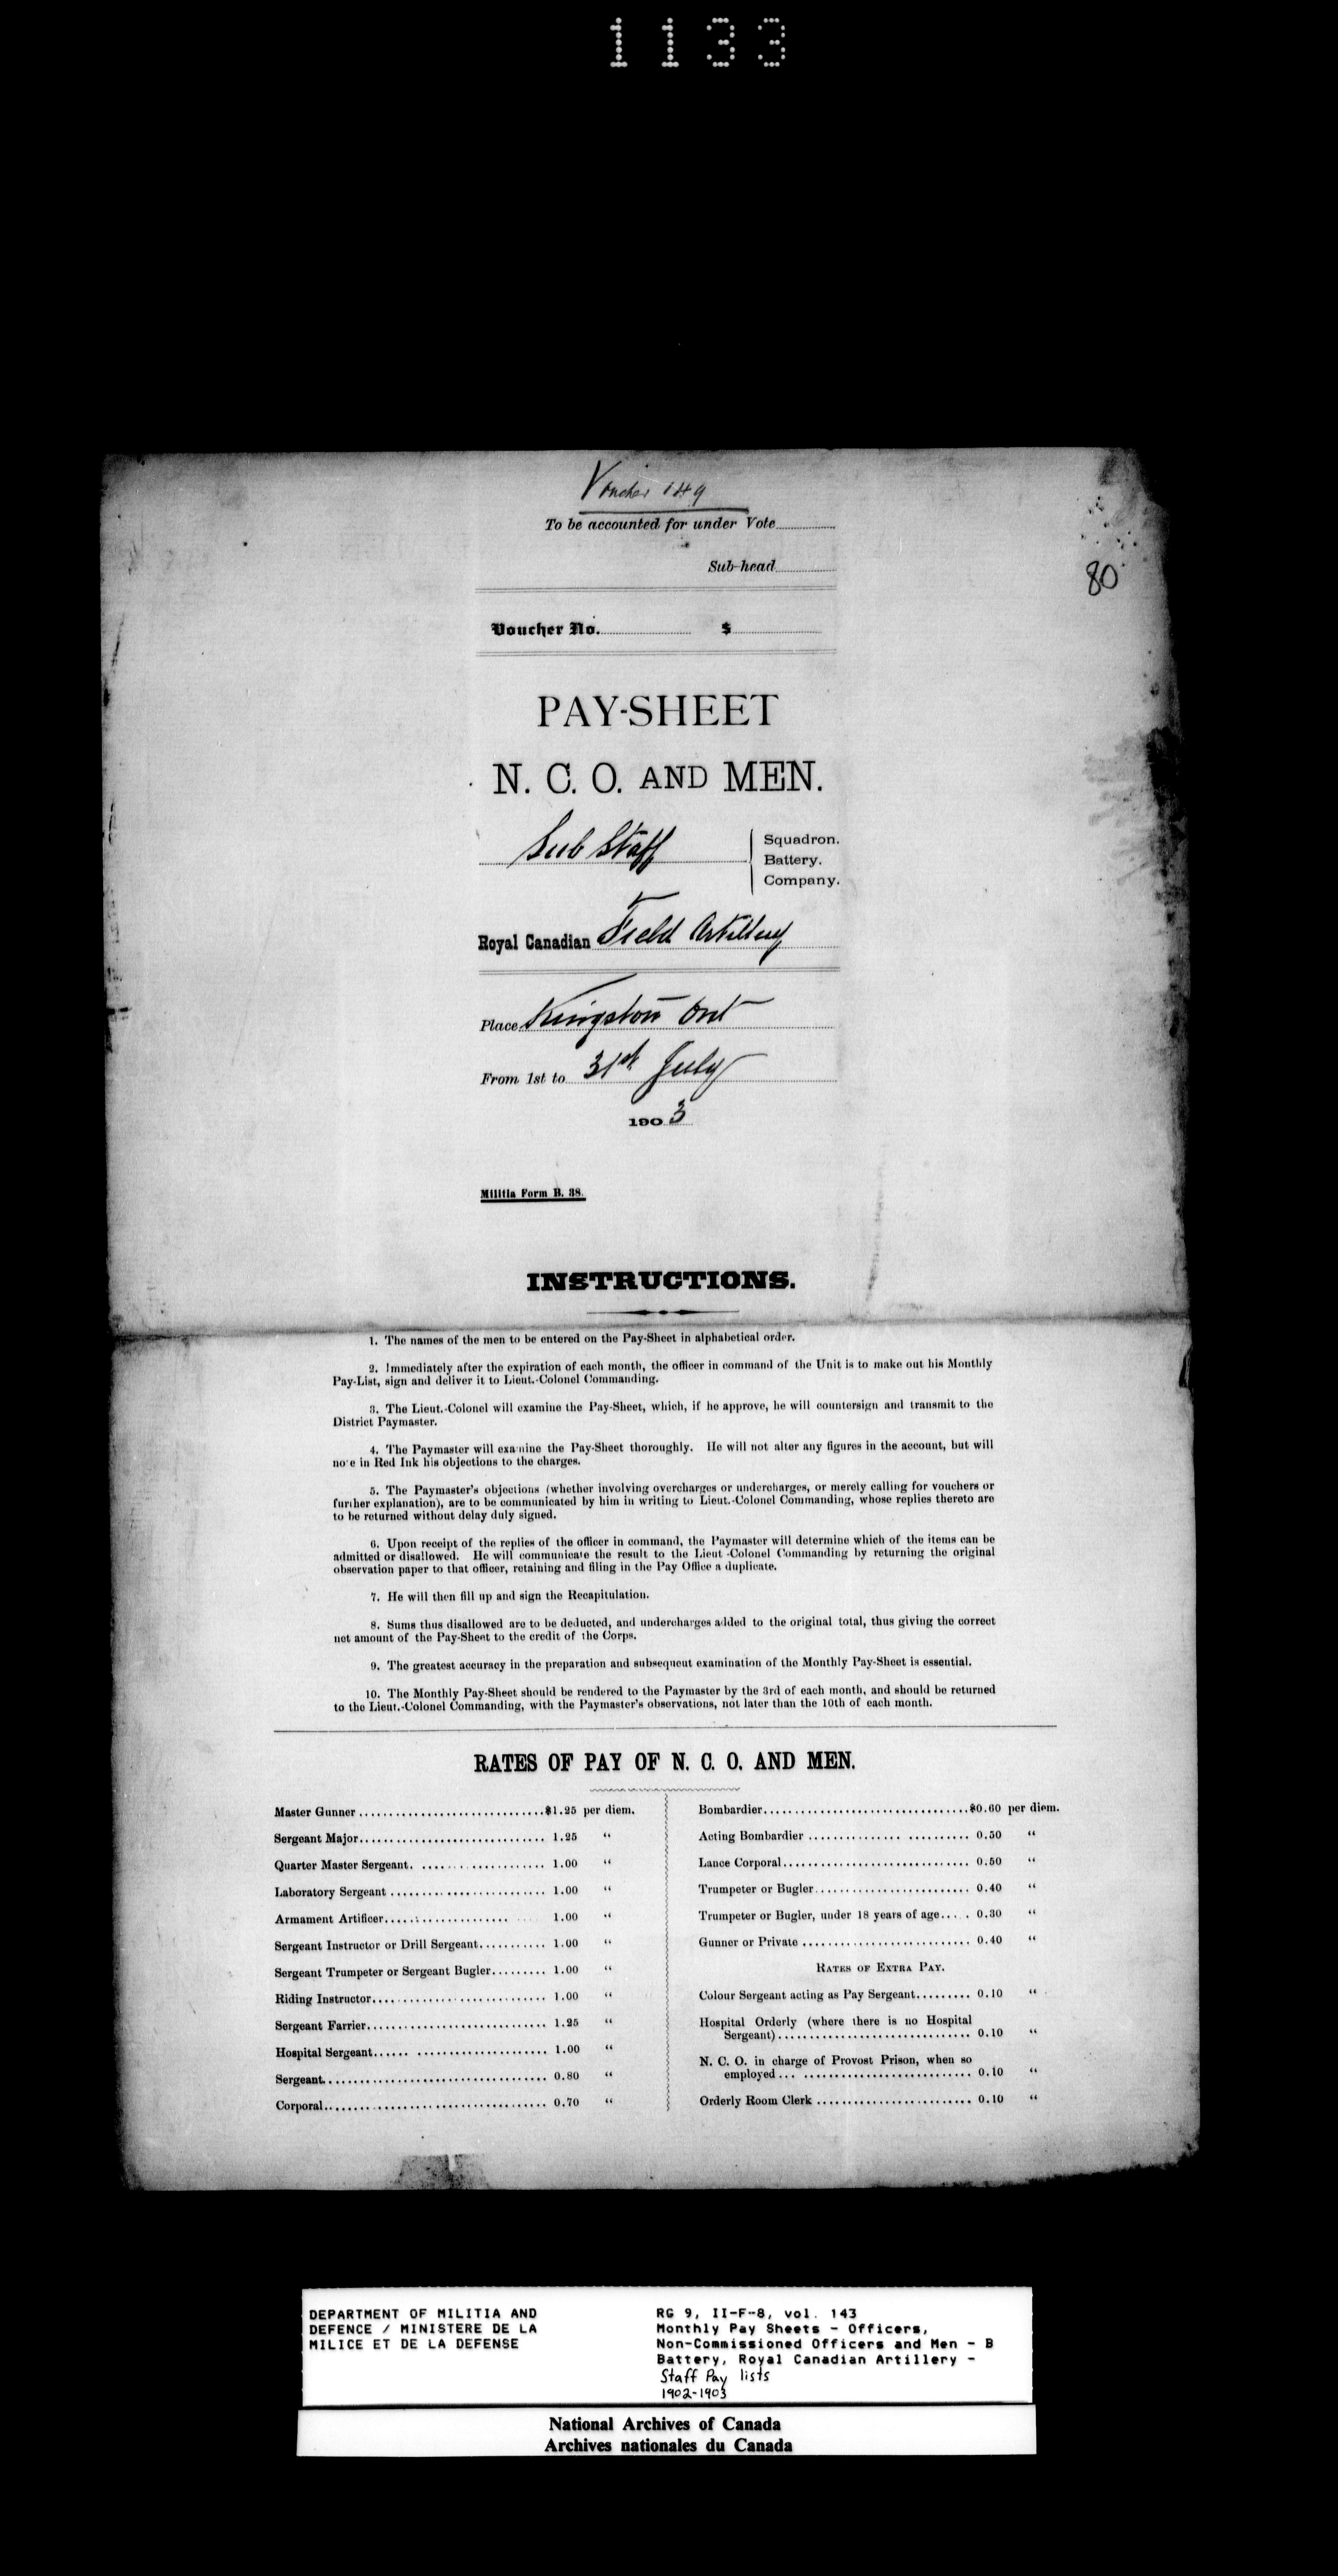 1133
Voucher 149
To be accounted for under Vote
Sub-head
80
Voucher No. $
PAY-SHEET
N. C. O. AND MEN.
Sub Staff
Squadron.
Battery.
Company.
Royal Canadian Field Artillery
Place Kingston Ont
From 1st to 31st July
1903
Militia Form B. 38.
INSTRUCTIONS.
1. The names of the men to be entered on the Pay-Sheet in alphabetical order.
2. Immediately after the expiration of each month, the officer in command of the Unit is to make out his Monthly
Pay-List, sign and deliver it to Lieut.-Colonel Commanding.
3. The Lieut.-Colonel will examine the Pay-Sheet, which, if he approve, he will countersign and transmit to the
District Paymaster.
4. The Paymaster will examine the Pay-Sheet thoroughly. He will not alter any figures in the account, but will
note in Red Ink his objections to the charges.
5. The Paymaster's objections (whether involving overcharges or undercharges, or merely calling for vouchers or
further explanation), are to be communicated by him in writing to Lieut.-Colonel Commanding, whose replies thereto are
to be returned without delay duly signed.
6. Upon receipt of the replies of the officer in command, the Paymaster will determine which of the items can be
admitted or disallowed. He will communicate the result to the Lieut-Colonel Commanding by returning the original
observation paper to that officer, retaining and filing in the Pay Office a duplicate.
7. He will then fill up and sign the Recapitulation.
8. Sums thus disallowed are to be deducted, and undercharges added to the original total, thus giving the correct
net amount of the Pay-Sheet to the credit of the Corps.
9. The greatest accuracy in the preparation and subsequent examination of the Monthly Pay-Sheet is essential.
10. The Monthly Pay-Sheet should be rendered to the Paymaster by the 3rd of each month, and should be returned
to the Lieut.-Colonel Commanding, with the Paymaster's observations, not later than the 10th of each month.
RATES OF PAY OF N. C. O. AND MEN.
Master Gunner $1.25 per diem.
Sergeant Major 1.25 "
Quarter Master Sergeant. 1.00 "
Laboratory Sergeant 1.00 "
Armament Artificer 1.00 "
Sergeant Instructor or Drill Sergeant 1.00 "
Sergeant Trumpeter or Sergeant Bugler 1.00 "
Riding Instructor 1.00 "
Sergeant Farrier 1.25 "
Hospital Sergeant 1.00 "
Sergeant 0.80 "
Corporal 0.70 "
Bombardier $0.60 per diem.
Acting Bombardier 0.50 "
Lance Corporal 0.50 "
Trumpeter or Bugler 0.40 "
Trumpeter or Bugler, under 18 years of age 0.30 "
Gunner or Private 0.40 "
RATES OF EXTRA PAY.
Colour Sergeant acting as Pay Sergeant 0.10 "
Hospital Orderly (where there is no Hospital
Sergeant) 0.10 "
N. C. O. in charge of Provost Prison, when so
employed 0.10 "
Orderly Room Clerk 0.10 "
DEPARTMENT OF MILITIA AND
DEFENCE / MINISTERE DE LA
MILICE ET DE LA DEFENSE
RG 9, II-F-8, vol. 143
Monthly Pay Sheets - Officers,
Non-Commissioned Officers and Men - B
Battery, Royal Canadian Artillery -
Staff Pay lists
1902-1903
National Archives of Canada
Archives nationales du Canada